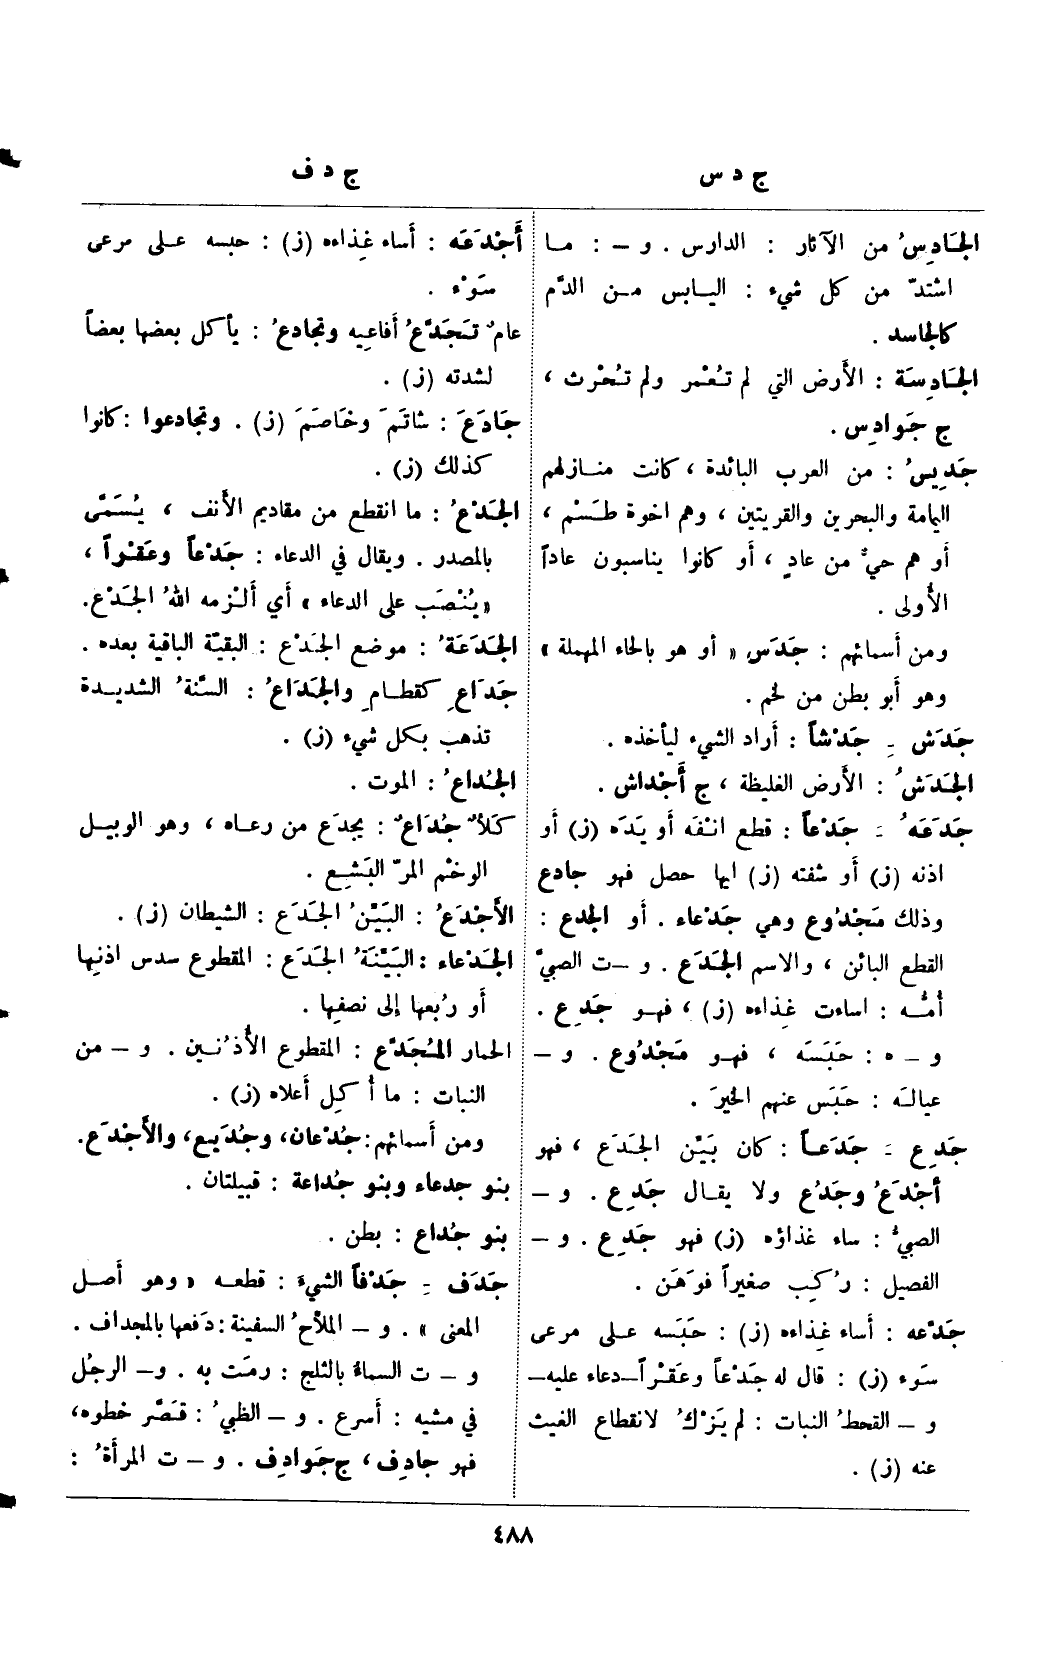 ج د س
ج د ف
الجَادِسُ من الآثار : الدارس . و – : ما
اشتدّ من كل شيء : اليابس من الدَّم
كالجاسد .
الجَادِسَة : الأرض التي لم تُعْمر ولم تُحْرث ،
ج جَوادِس .
جَدِيسُ : من العرب البائدة ، كانت منازلهم
اليمامة والبحرين والقريتين ، وهم اخوة طَسْم ،
أو هم حيٌّ من عادٍ ، أو كانوا يناسبون عاداً
الأولى .
ومن أسمائهم : جَدَس « أو هو بالحاء المهملة »
وهو أبو بطن من لخم .
جَدَش ـِ جَدْشاً : أراد الشيء ليأخذه .
الجَدَشُ : الأرض الغليظة ، ج أَجْداش .
جَدَعَهُ ـَ جَدْعاً : قطع انْفَه أو يَدَه (ز) أو
اذنه (ز) أو شفته (ز) ايها حصل فهو جادع
وذلك مَجْدُوع وهي جَدْعاء . أو الجدع :
القطع البائن ، والاسم الجَدَع . و –ت الصبيَّ
أُمُّه : اساءت غِذاءه (ز) ، فهو جَدِع .
و – ه : حَبَسَه ، فهو مَجْدُوع . و –
عياله : حَبَس عنهم الخيرَ .
جَدِع ـَ جَدَعاً : كان بَيّن الجَدَع ، فهو
أجْدَعُ وجَدُع ولا يقال جَدِع . و –
الصبيُّ : ساء غذاؤه (ز) فهو جَدِع . و –
الفصيل : رُكِب صغيراً فوَهَن .
جَدّعه : أساء غِذاءه (ز) : حَبَسه على مرعى
سَوء (ز) : قال له جَدْعاً وعَقْراً–دعاء عليه–
و – القحطُ النبات : لم يَزْكُ لانقطاع الغيث
عنه (ز) .
أَجْدَعَه : أساء غِذاءه (ز) : حبسه على مرعى
سَوْء .
عامٌ تَجَدَّعُ أفاعِيه وتجادعُ : يأكل بعضها بعضاً
لشدته (ز) .
جَادَعَ : شاتَمَ وخَاصَمَ (ز) . وتجادعوا : كانوا
كذلك (ز) .
الجَدْعُ : ما انقطع من مقاديم الأنف ، يُسَمَّى
بالمصدر . ويقال في الدعاء : جَدْعاً وعَقْراً ،
« يُنْصَب على الدعاء » أي ألْزمه اللهُ الجَدْع.
الجَدَعَةُ : موضع الجَدْع : البقيّة الباقية بعده .
جَدَاعِ كقطامِ والجَدَاعُ : السَّنةُ الشديدة
تذهب بكل شيء (ز) .
الجُداعُ : الموت .
كَلأٌ جُدَاعٌ : يجدَع من رعاه ، وهو الوبيل
الوخْم المرّ البَشِع .
الأَجْدَعُ : البَيّنُ الجَدَع : الشيطان (ز) .
الجَدْعاء : البَيّنَةُ الجَدَع : المقطوع سدس اذنها
أو رُبعها إلى نصفها .
الحمار المُجَدَّع : المقطوع الأُذُنين . و – من
النبات : ما أُكِل أعلاه (ز) .
ومن أسمائهم : جُدْعان، وجُدَيع، والأَجْدَع.
بنو جدعاء وبنو جُداعة : قبيلتان .
بنو جُداع : بطن .
جَدَف ـِ جَدْفاً الشيءَ : قطعه « وهو أصل
المعنى » . و – الملاّحُ السفينة : دَفعها بالمجداف .
و – ت السماءُ بالثلج : رمَت به . و– الرجل
في مشيه : أسرع . و – الظبيُ : قصَّر خطوه،
فهو جادِف ، ج جَوادِف . و – ت المرأةُ :
٤٨٨